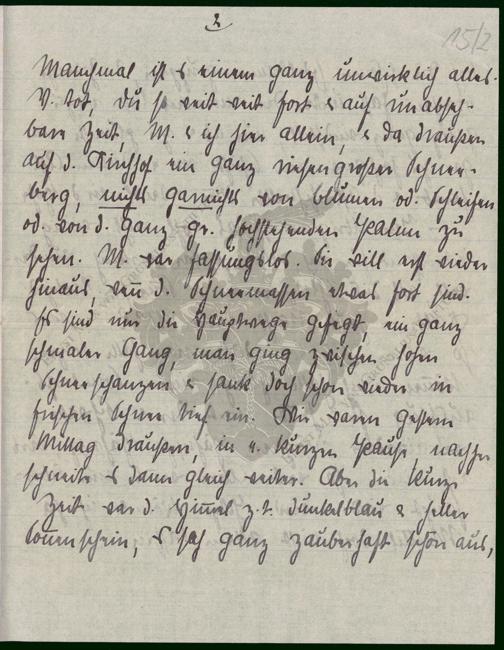 2
15/2
Manchmal ist's einem ganz unwirklich alles.
V. tot, du so weit weit fort & auf unabseh-
bare Zeit, M. & ich hier allein, & da draußen
auf d. Kirchhof ein ganz riesengroßer Schnee-
berg, nichts garnichts von Blumen od. Schleifen
od. von d. ganz gr. hochstehenden Palme zu
sehen. M. war fassungslos. Sie will erst wieder
hinaus, wenn d. Schneemassen etwas fort sind.
Es sind nur die Hauptwege gefegt, ein ganz
schmaler Gang, man ging zwischen hohen
Schneeschanzen & sank doch schon wieder in
frischen Schnee tief ein. Wir waren gestern
Mittag draußen, in e. kurzen Pause, nachher
schneite es dann gleich weiter. Aber die kurze
Zeit war d. Himmel z.T. dunkelblau & heller
Sonnenschein, es sah ganz zauberhaft schön aus,